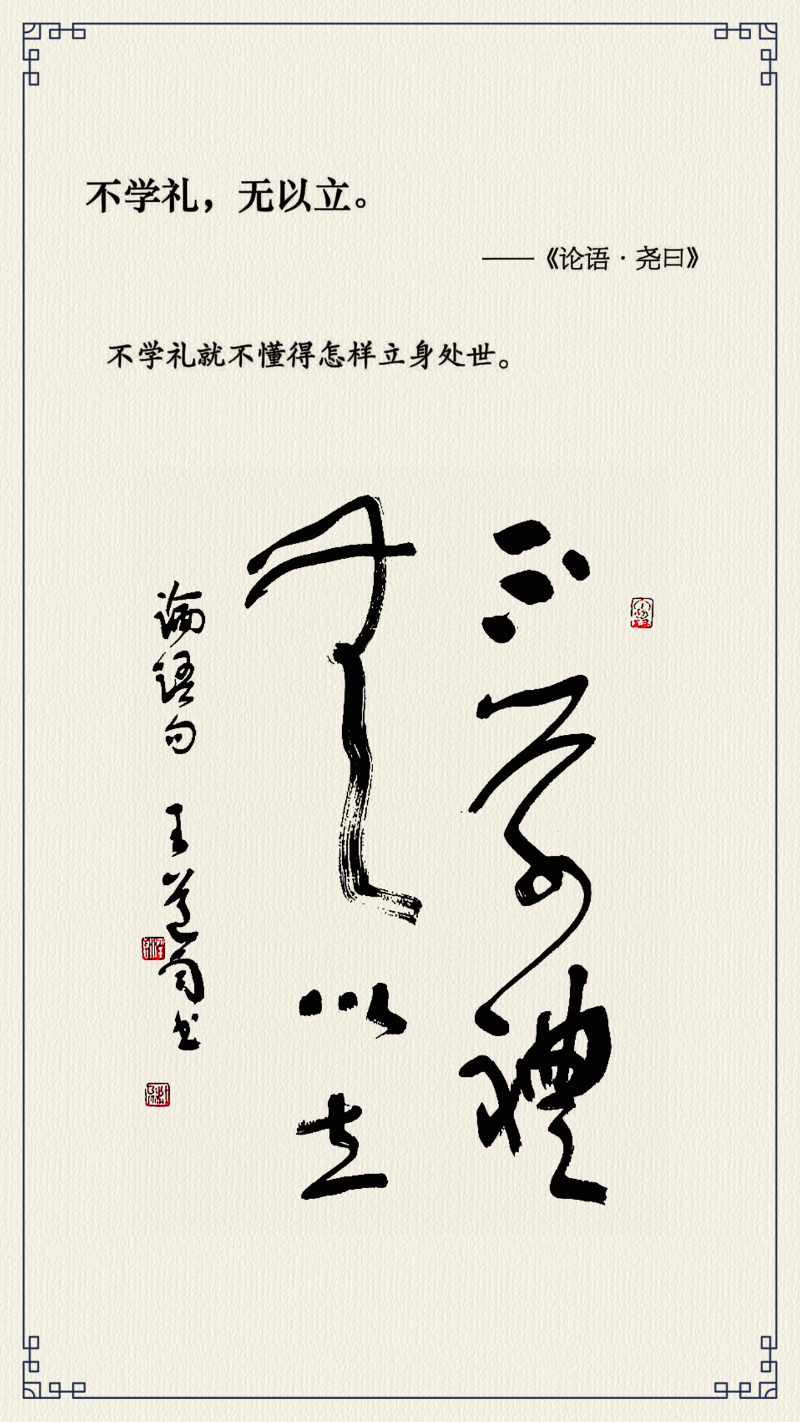 不学礼，无以立。
——《论语·尧曰》
不学礼就不懂得怎样立身处世。
不学禮
無以立
論語句 王道句书